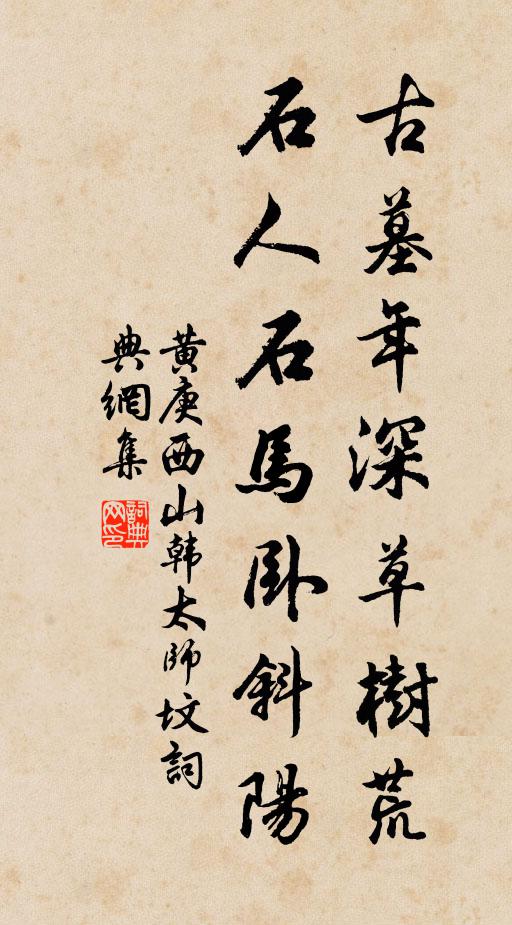 古墓年深草樹荒
石人石馬卧斜陽
黄庚西山韩太師坟詞
典網集
詞典网印